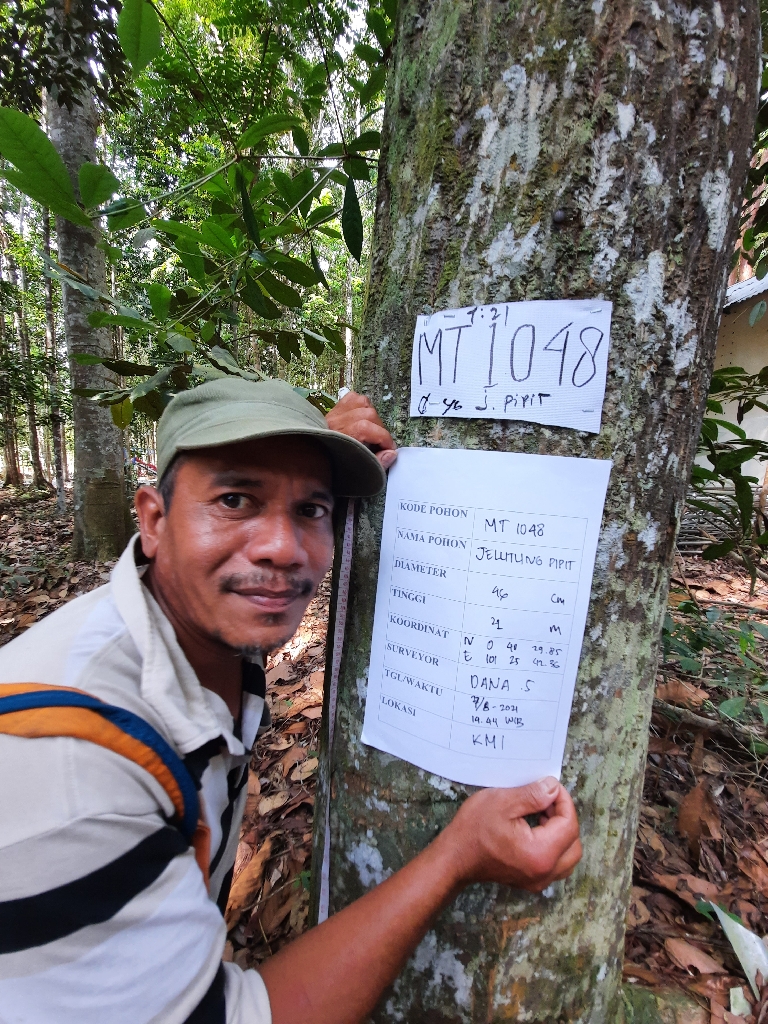 T:21
MT 1048
Ø-46 J. PIPIT
KODE POHON MT 1048
NAMA POHON JELUTUNG PIPIT
DIAMETER 46 Cm
TINGGI 21 m
KOORDINAT N 0 48 29.85
E 101 25 42.36
SURVEYOR DANA .S
TGL/WAKTU 7/8-2021
14.44 WIB
LOKASI KMI